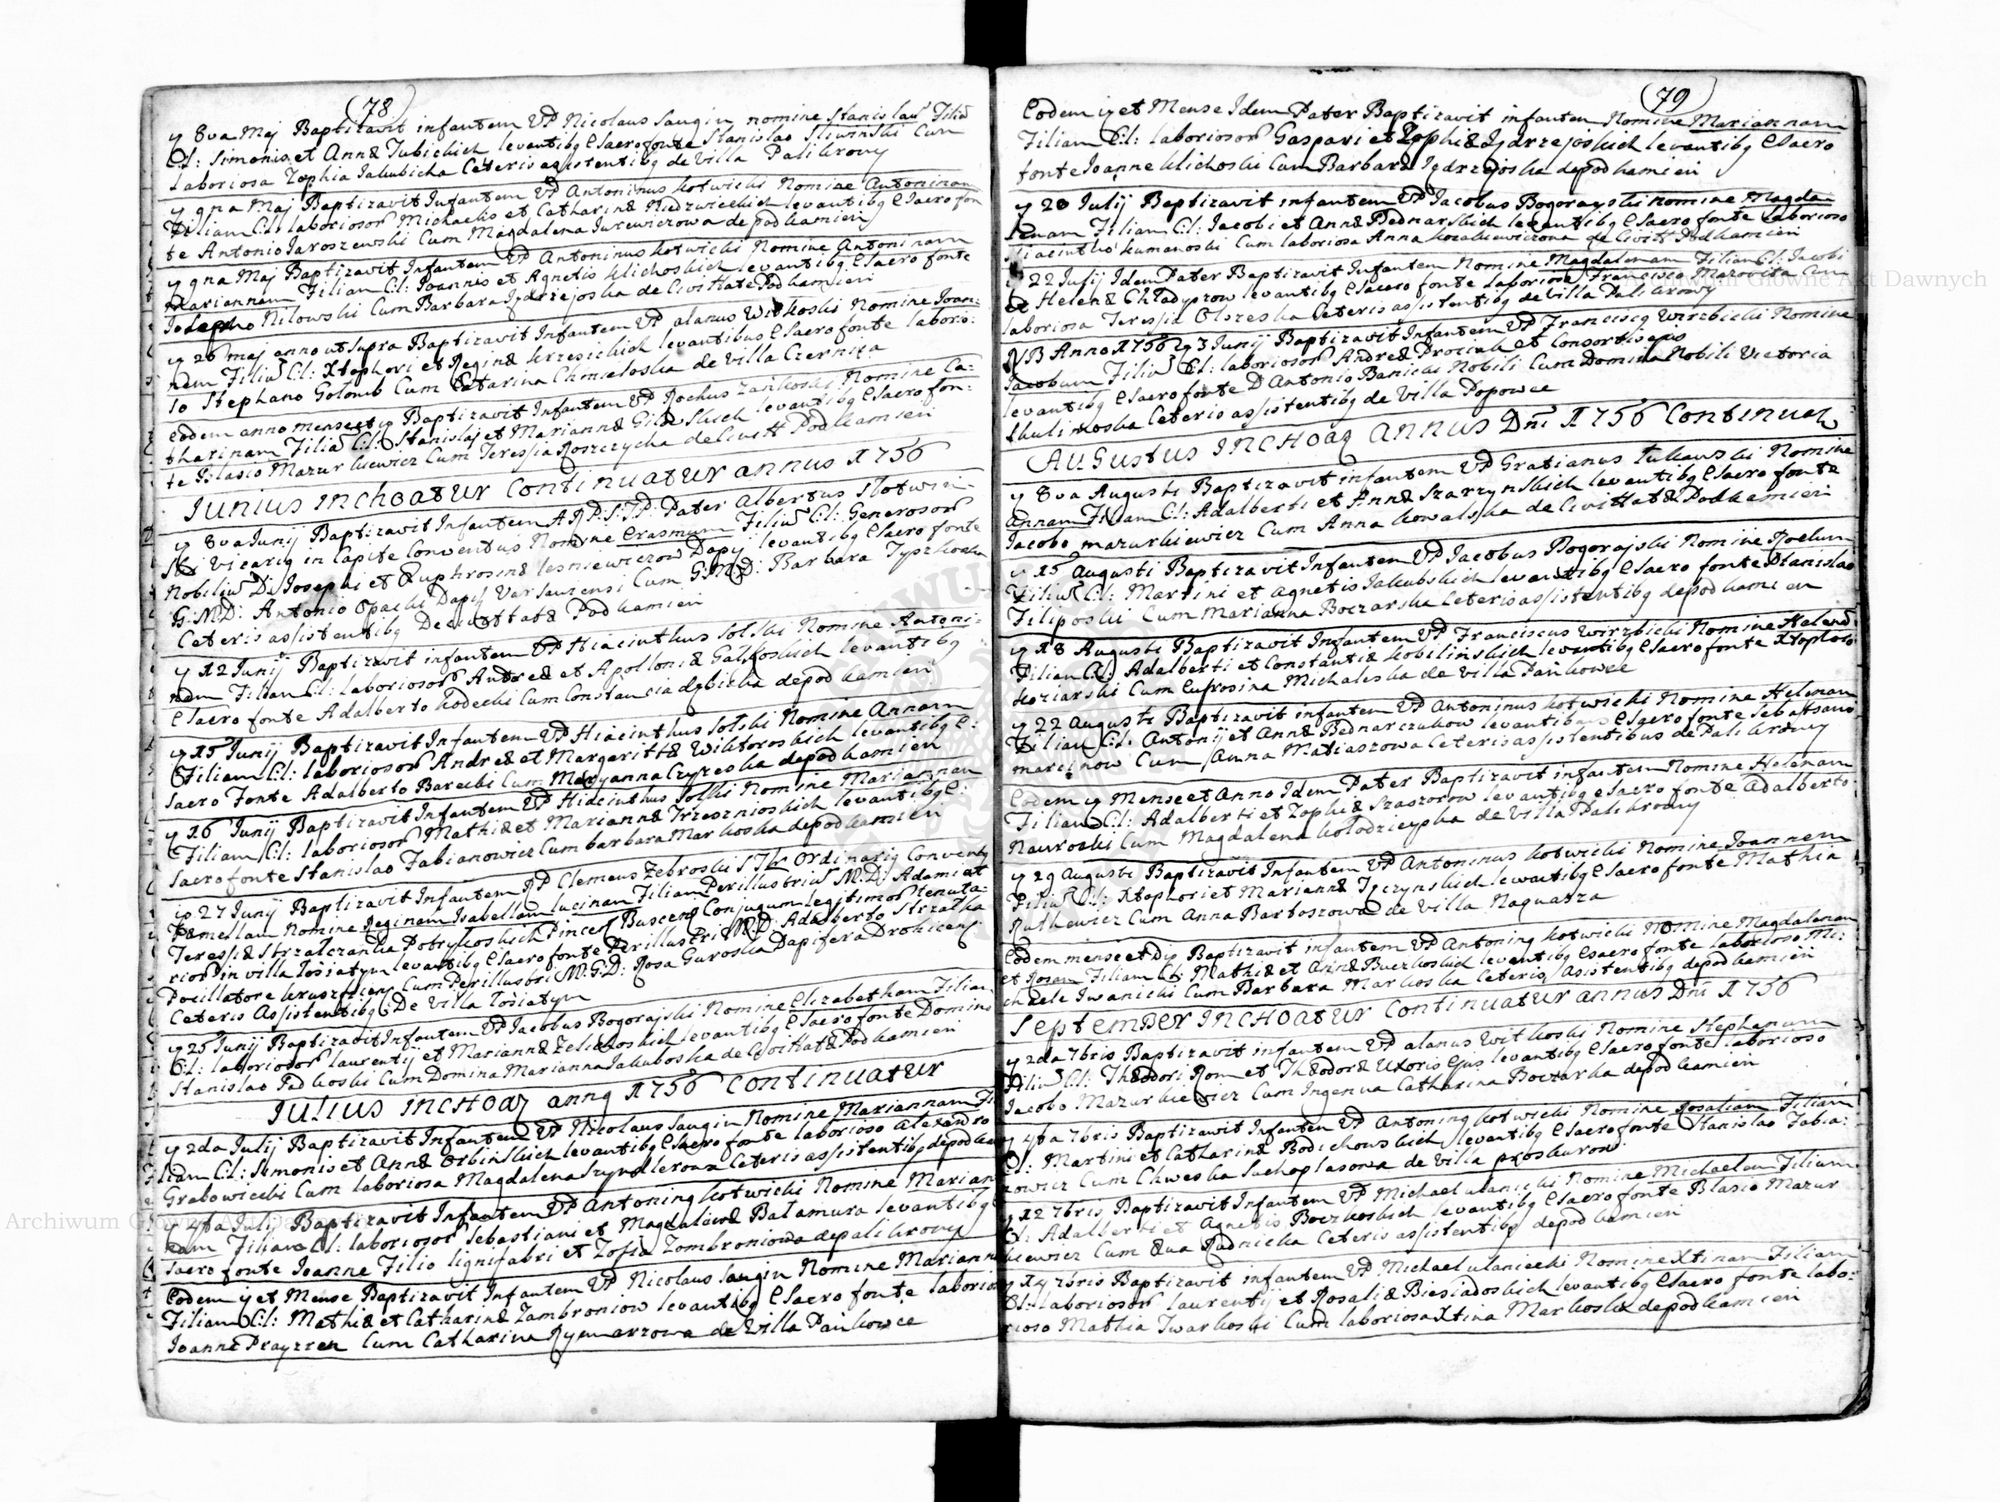 (78)
8va Maj Baptizavit infantem VP Nicolaus Saugin nomine Stanislau Filiu
C:L: Simonis et Annæ Jubickich levantibq e Sacro fonte Stanislao Sliwinski Cum
laboriosa Zophia Jakubicha Ceteris assistentibq de Villa Palikrowy
9na Maj Baptizavit Infantem VP Antoninus Kotwicki Nomine Antoninam
Filiam C:L: laborioson Michaelis et Catharinæ Niedzwieckich levantibq e Sacro fon
te Antonio Jaroszewski Cum Magdalena Jurewiczowa de podkamien
9na Maj Baptizavit Infantem VP Antoninus Kotwicki Nomine Antoninam
Mariannam Filiam C:L: Joannis et Agnetis Klichoskich levantibq e Sacro fonte
Josepho Nilowski Cum Barbara Jędrzejoska de Civittate Podkamien
26 maj anno ut Supra Baptizavit Infantem VP alanus Witkoski Nomine Joan:
nem Filiu C:L: Xtophori et Reginæ Krzesickich levantibus e Sacro fonte laborio:
so Stephano Golomb Cum Catarina Chmieloska de Villa Czernica
eodem anno mense et Baptizavit Infantem VP Rochus Zankoski Nomine Ca=
tharinam Filia C:L: Stanislaj et Mariannæ levantibq e Sacro fon:
te Blasio Mazurkiewicz Cum Teressia Roszczycha de Civitt Podkamien
Junius inchoatur Continuatur annus 1756
8va Junij Baptizavit Infantem A.R.P.S.T.P. Pater Albertus Slotwin=
ski Vicariq in Capite Conventus Nomine Erasmum Filiu C:L: Generoson
Nobiliu D: Josephi et Euphrosinæ lesniewiczow Dapij levantibq e Sacro fonte
G:M:D: Antonio Opacki Dapif Varsauiensi Cum G:M:D: Barbara Tyszkoska
Ceteris assistentibq De Civittatæ Podkamien
12 Junij Baptizavit infantem VP Hiacinthus Solski Nomine Antoni=
nam Filiam C:L: laborioson Andreæ et Apolloniæ Galkoskich levantibq
e Sacro fonte Adalberto Kodecki Cum Constancia dębicka de podkamien
15 Junij Baptizavit Infantem VP Hiacinthus Solski Nomine Annam
Filiam C:L: laborioson Andreæ et Margarittæ Wiktoroskich levantibq e:
Sacro Fonte Adalberto Barecki Cum Maryanna Czyreska de podkamien
16 Junij Baptizavit Infantem VP Hiacinthus Solski Nomine Mariannam
Filiam C:L: laborioson Mathiæ et Mariannæ Trzesznioskich levantibq e:
Sacro fonte Stanislao Fabianowicz Cum barbara Markoska de podkamien
27 Junij Baptizavit Infantem RP Clemens Zebroski S:Th: Ordinariq Conventq
Nomine Reginam Isabellam lucinam Filiam Perillustriu M:D: Adami et
Teressiæ Strzalczanka Potrykoskich Pincer Buscenq Conjugum legitimor tenuta=
rior in villa Josiatyn levantibq e Sacro fonte Perillustri M:D: Adalberto Strzalka
Pocillatore Cum Perillustri M:G:D: Rosa Guroska Dapifera Drohicenq
Ceteris Assistentibq De Villa Josiatyn
25 Junij Baptizavit Infantem VP Jacobus Bogorajski Nomine Elizabetham Filiam
C:L: laborioson laurentij et Mariannæ Zelichoskich levantibq e Sacro fonte Domino
Stanislao Cum Domina Marianna Jakuboska de Civittatæ Podkamien
Julius inchoaq annq 1756 Continuatur
2da Julij Baptizavit Infantem VP Nicolaus Saugin Nomine Mariannam Fi
liam C:L: Simonis et Annæ Orbinskich levantibq e Sacro fonte laborioso Alexandro
Grabowiecki Cum laboriosa Magdalena Szyndlerowa Ceteris assistentibq de podkam
4ta Julij Baptizavit Infantem VP Antoninq Kotwicki Nomine Marian
nam Filiam C:L: laborioson Sebastiani et Magdalenæ Balamura levantibq e
Sacro fonte Joanne Filio lignifabri et Zofia Zombroniowa de palikrowy
Eodem et Mense Baptizavit Infantem VP Nicolaus Saugin Nomine Mariann
Filiam C:L: Mathiæ et Catharinæ Zambroniow levantibq e Sacro fonte laborio
Joanne Cum Catharina Rymarzowa de Villa Pankowce
(79)
Eodem et Mense Idem Pater Baptizavit infantem Nomine Mariannam
Filiam C:L: laborioson Gaspari et Zophiæ Jędrzejoskich levantibq e Sacro
fonte Joanne Klichoski Cum Barbara Jędrzejoska de podkamien
20 Julij Baptizavit infantem VP Jacobus Bogorayski nomine Magda
lenam Filiam C:L: Jacobi et Annæ Bednarskich levantibq e Sacro fonte laborioso
Hiacintho Kumanoski Cum laboriosa Anna Kozakiewiczowa de Civitt Podkamien
22 Julij Idem Pater Baptizavit Infantem Nomine Magdalenam Filiam C:L: Jacobi
et Helenæ Chladyszow levantibq e Sacro fonte laborioso Francisco Mazowita Cum
laboriosa Teressia Olszeska Ceteris assistentibq de Villa Palikrowy
NB Anno 1756 23 Junij Baptizavit Infantem VP Franciscq Wirzbicki Nomine
Jacobum Filiu C:L: laborioson Andreæ Prociuk et Consortis ejus
levantibq e Sacro fonte D Antonio Banicki Nobili Cum Domina Nobili Victoria
Skulimoska Ceteris assistentibq de Villa Popowce
Augustus Inchoaq Annus Dni 1756 Continuat
8va Augusti Baptizavit infantem VP Gratianus Tukauski Nomine
Annam Filiam C:L: Adalberti et Annæ Szarzynskich levantibq e Sacro fonte
Jacobo mazurkiewicz Cum Anna Kowalska de Civittatæ Podkamien
15 Augusti Baptizavit Infantem VP Jacobus Bogorajski Nomine Roelum
Filiu C:L: Martini et Agnetis Jakubskich levantibq e Sacro fonte D Stanislao
Filiposki Cum Marianna Boczarska Ceteris assistentibq de podkamien
18 Augusti Baptizavit Infantem VP Franciscus Wirzbicki Nomine Helena
Filiam C:L: Adalberti et Constantiæ Kobilinskich levantibq e Sacro fonte Xtophoro
Koziarski Cum Eufrosina Michaleska de Villa Pankowce
22 Augusti Baptizavit infantem VP Antoninus Kotwicki Nomine Helenam
Filiam C:L: Antonij et Annæ Bednarczukow levantibus e Sacro fonte Sebastiano
marcinow Cum Anna Matiaszowa Ceteris assistentibus de Palikrowy
Eodem Mense et Anno Idem Pater Baptizavit infantem Nomine Helenam
Filiam C:L: Adalberti et Zophiæ Szaszorow levantibq e Sacro fonte Adalberto
Nawroski Cum Magdalena Kolodzieyska de Villa Palikrowy
29 Augusti Baptizavit Infantem VP Antoninus Kotwicki Nomine Joannem
Filiu C:L: Xtophori et Mariannæ Tęczynskich levantibq e Sacro fonte Mathia
Ruthkewicz Cum Anna Bartoszowa de Villa Naquasza
Eodem mense et Die Baptizavit infantem VP Antoninq Kotwicki Nomine Magdalenam
et Rosam Filiam C:L: Mathiæ et Annæ Buczkoskich levantibq e Sacro fonte laborioso Mi:
chaele Iwanicki Cum Barbara Markoska Ceteris assistentibq de podkamien
September Inchoatur Continuatur annus Dni 1756
2da 7bris Baptizavit infantem VP alanus Witkoski Nomine Stephanum
Filiu C:L: Theodori Rom et Theodoræ Uxoris Ejus levantibq e Sacro fonte laborioso
Jacobo Mazurkiewicz Cum Ingenua Catharina Boczarka de podkamien
4ta 7bris Baptizavit Infantem VP Antoninq Kotwicki Nomine Rosaliam Filiam
C:L: Martini et Catharinæ Bodichowskich levantibq e Sacro fonte Stanislao Fabia:
nowicz Cum Chweska Suchoplasowa de Villa proskurow
12 7bris Baptizavit Infantem VP Michael ulaniecki Nomine Michaelem Filium
C:L: Adalberti et Agnetis Boczkoskich levantibq e Sacro fonte Blasio Mazur
kiewicz Cum Eua Radnicka Ceteris assistentibq de podkamien
14 7bris Baptizavit infantem VP Michael ulaniecki Nomine Xtinam Filiam
C:L: laborioson laurentij et Rosaliæ Biesiadoskich levantibq e Sacro fonte labo:
rioso Mathia Twarkoski Cum laboriosa Xtina Markoska de podkamien
Archiwum Główne Akt Dawnych